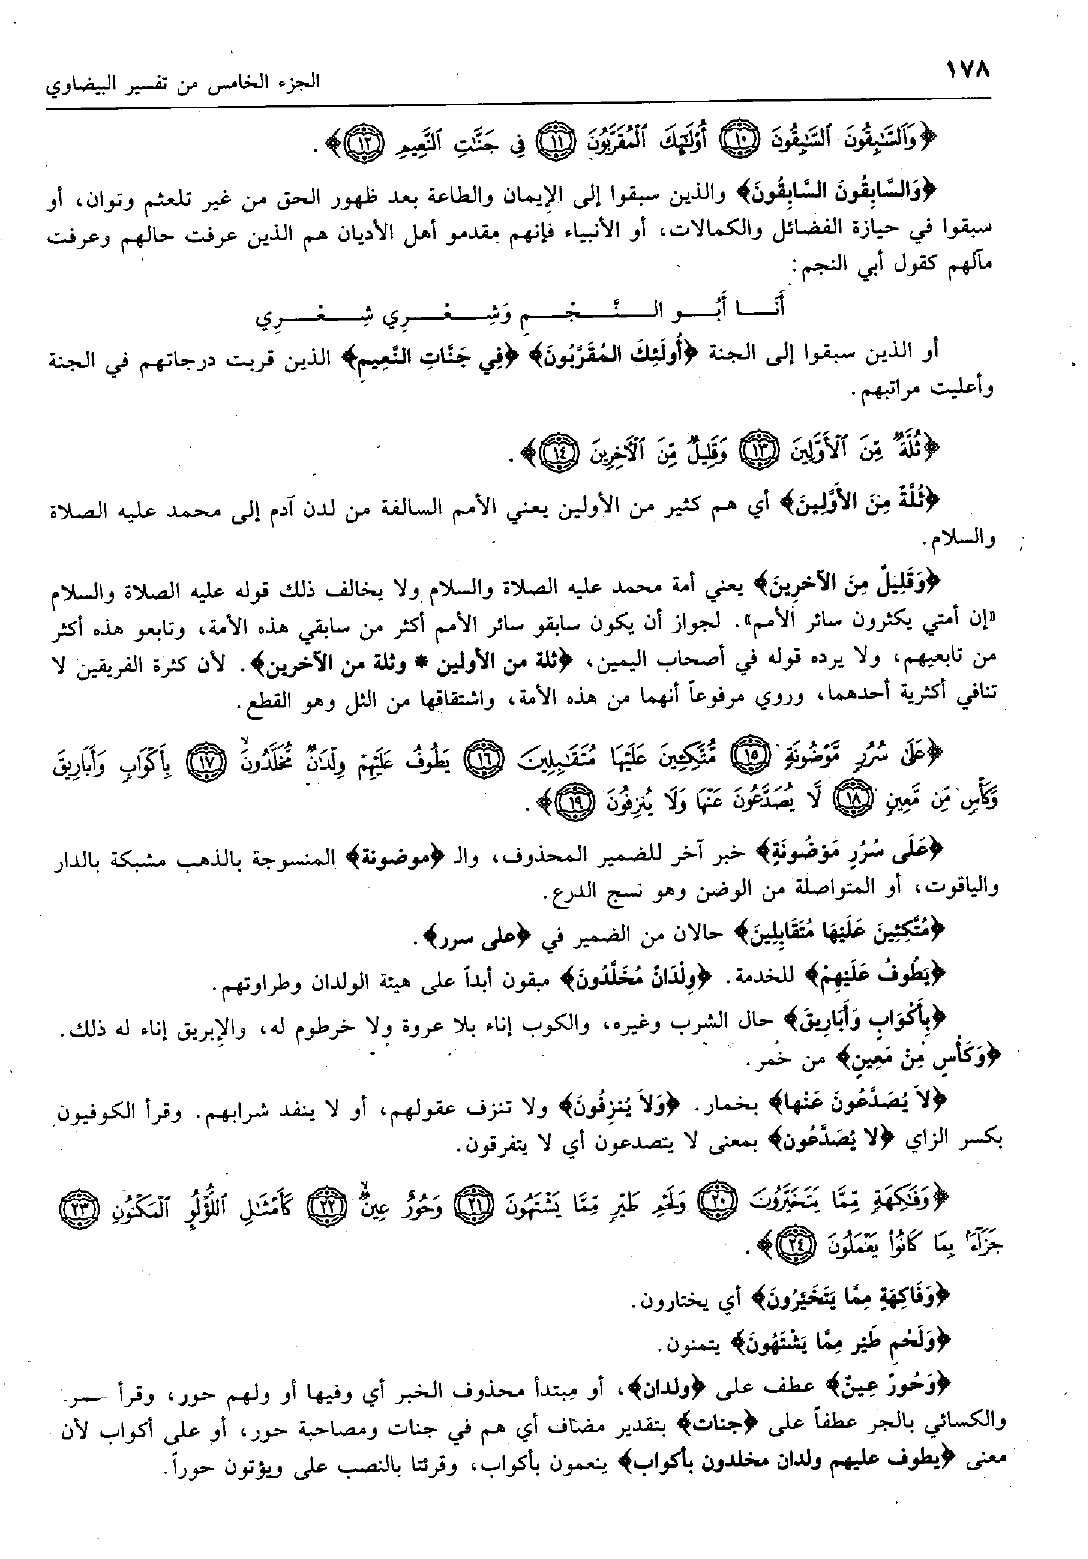 ١٧٨
الجزء الخامس من تفسير البيضاوي
﴿وَٱلسَّٰبِقُونَ ٱلسَّٰبِقُونَ ١٠ أُوْلَٰٓئِكَ ٱلْمُقَرَّبُونَ ١١ فِي جَنَّٰتِ ٱلنَّعِيمِ ١٢﴾.
﴿وَالسَّابِقُونَ السَّابِقُونَ﴾ والذين سبقوا إلى الإيمان والطاعة بعد ظهور الحق من غير تلعثم وتوان، أو
سبقوا في حيازة الفضائل والكمالات، أو الأنبياء فإنهم مقدمو أهل الأديان هم الذين عرفت حالهم وعرفت
مآلهم كقول أبي النجم:
أَنَا أَبُو النَّجْمِ وَشِعْرِي شِعْرِي
أو الذين سبقوا إلى الجنة ﴿أُولَئِكَ المُقَرَّبُونَ﴾ ﴿فِي جَنَّاتِ النَّعِيمِ﴾ الذين قربت درجاتهم في الجنة
وأعليت مراتبهم.
﴿ثُلَّةٌ مِّنَ ٱلْأَوَّلِينَ ١٣ وَقَلِيلٌ مِّنَ ٱلْآخِرِينَ ١٤﴾.
﴿ثُلَّةٌ مِنَ الأَوَّلِينَ﴾ أي هم كثير من الأولين يعني الأمم السالفة من لدن آدم إلى محمد عليه الصلاة
والسلام.
﴿وَقَلِيلٌ مِنَ الآخِرِينَ﴾ يعني أمة محمد عليه الصلاة والسلام ولا يخالف ذلك قوله عليه الصلاة والسلام
«إن أمتي يكثرون سائر الأمم». لجواز أن يكون سابقو سائر الأمم أكثر من سابقي هذه الأمة، وتابعو هذه أكثر
من تابعيهم، ولا يرده قوله في أصحاب اليمين، ﴿ثلة من الأولين * وثلة من الآخرين﴾. لأن كثرة الفريقين لا
تنافي أكثرية أحدهما، وروي مرفوعاً أنهما من هذه الأمة، واشتقاقها من الثل وهو القطع.
﴿عَلَىٰ سُرُرٍ مَّوْضُونَةٍ ١٥ مُّتَّكِئِينَ عَلَيْهَا مُتَقَٰبِلِينَ ١٦ يَطُوفُ عَلَيْهِمْ وِلْدَٰنٌ مُّخَلَّدُونَ ١٧ بِأَكْوَابٍ وَأَبَارِيقَ
وَكَأْسٍ مِّن مَّعِينٍ ١٨ لَّا يُصَدَّعُونَ عَنْهَا وَلَا يُنزِفُونَ ١٩﴾.
﴿عَلَى سُرُرٍ مَوْضُونَةٍ﴾ خبر آخر للضمير المحذوف، وال ﴿موضونة﴾ المنسوجة بالذهب مشبكة بالدار
والياقوت، أو المتواصلة من الوضن وهو نسج الدرع.
﴿مُتَّكِئِينَ عَلَيْهَا مُتَقَابِلِينَ﴾ حالان من الضمير في ﴿على سرر﴾.
﴿يَطُوفُ عَلَيْهِمْ﴾ للخدمة. ﴿وِلْدَانٌ مُخَلَّدُونَ﴾ مبقون أبداً على هيئة الولدان وطراوتهم.
﴿بِأَكْوَابٍ وَأَبَارِيقَ﴾ حال الشرب وغيره، والكوب إناء بلا عروة ولا خرطوم له، والإبريق إناء له ذلك.
﴿وَكَأْسٍ مِنْ مَعِينٍ﴾ من خمر.
﴿لاَ يُصَدَّعُونَ عَنْها﴾ بخمار. ﴿وَلاَ يُنزِفُونَ﴾ ولا تنزف عقولهم، أو لا ينفد شرابهم. وقرأ الكوفيون
بكسر الزاي ﴿لا يُصَدَّعُون﴾ بمعنى لا يتصدعون أي لا يتفرقون.
﴿وَفَٰكِهَةٍ مِّمَّا يَتَخَيَّرُونَ ٢٠ وَلَحْمِ طَيْرٍ مِّمَّا يَشْتَهُونَ ٢١ وَحُورٌ عِينٌ ٢٢ كَأَمْثَٰلِ ٱللُّؤْلُؤِ ٱلْمَكْنُونِ ٢٣
جَزَآءً بِمَا كَانُوا يَعْمَلُونَ ٢٤﴾.
﴿وَفَاكِهَةٍ مِمَّا يَتَخَيَّرُونَ﴾ أي يختارون.
﴿وَلَحْمِ طَيْرٍ مِمَّا يَشْتَهُونَ﴾ يتمنون.
﴿وَحُورٌ عِينٌ﴾ عطف على ﴿ولدان﴾، أو مبتدأ محذوف الخبر أي وفيها أو ولهم حور، وقرأ
والكسائي بالجر عطفاً على ﴿جنات﴾ بتقدير مضاف أي هم في جنات ومصاحبة حور، أو على أكواب لأن
معنى ﴿يطوف عليهم ولدان مخلدون بأكواب﴾ ينعمون بأكواب، وقرئتا بالنصب على ويؤتون حوراً.